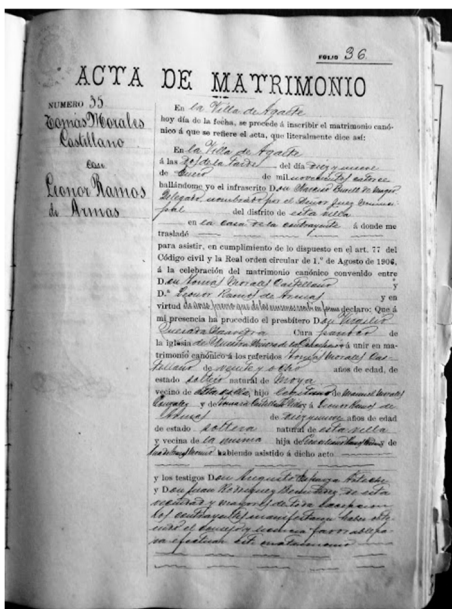 FOLIO 36.
ACTA DE MATRIMONIO
NUMERO 35
Tomás Morales
Castellano
con
Leonor Ramos
de Armas
En la Villa de Agaete
hoy día de la fecha, se procede á inscribir el matrimonio canó-
nico á que se refiere el acta, que literalmente dice así:
En la Villa de Agaete
á las de la tarde del día diez y nueve
de Enero de mil novecientos catorce
hallándome yo el infrascrito Don
Delegado nombrado por el Señor Juez munici-
pal del distrito de esta villa
en la casa de la contrayente á donde me
trasladé
para asistir, en cumplimiento de lo dispuesto en el art. 77 del
Código civil y la Real orden circular de 1.º de Agosto de 1906,
á la celebración del matrimonio canónico convenido entre
Don Tomás Morales Castellano y
D.ª Leonor Ramos de Armas y en
virtud declaro: Que á
mi presencia ha procedido el presbítero Don Virgilio
Quesada Saavedra Cura párroco de
la iglesia de Nuestra Señora á unir en ma-
trimonio canónico á los referidos Tomás Morales Cas-
tellano de veinte y ocho años de edad, de
estado soltero natural de Moya
vecino de hijo de Manuel Morales
y á Leonor Ramos de
Armas de diez y nueve años de edad
de estado soltera natural de esta villa
y vecina de la misma hija de y de
habiendo asistido á dicho acto
y los testigos Don Augusto Esparza
y Don Juan Rodríguez de esta
vecindad y mayores de
los contrayentes manifestaron haber obte-
nido el consejo y favorable pa-
ra efectuar este matrimonio